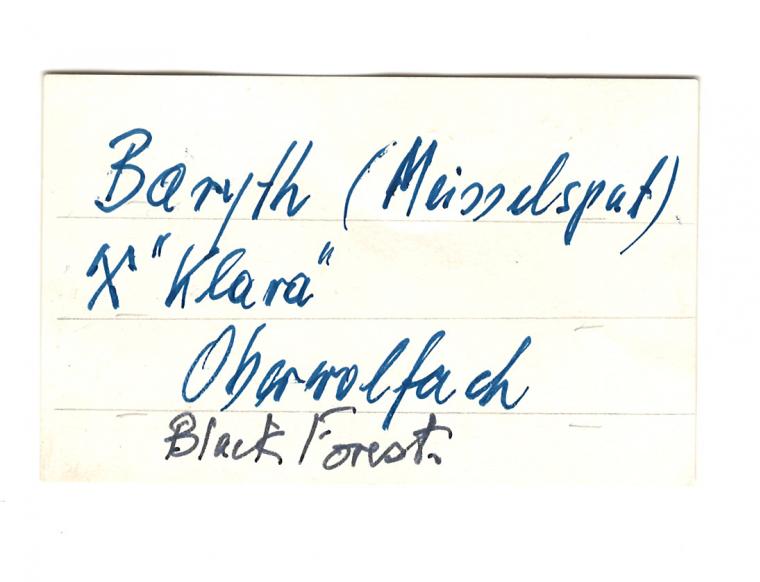 Baryth (Meisselspat)
⚒ "Klara"
Oberwolfach
Black Forest.